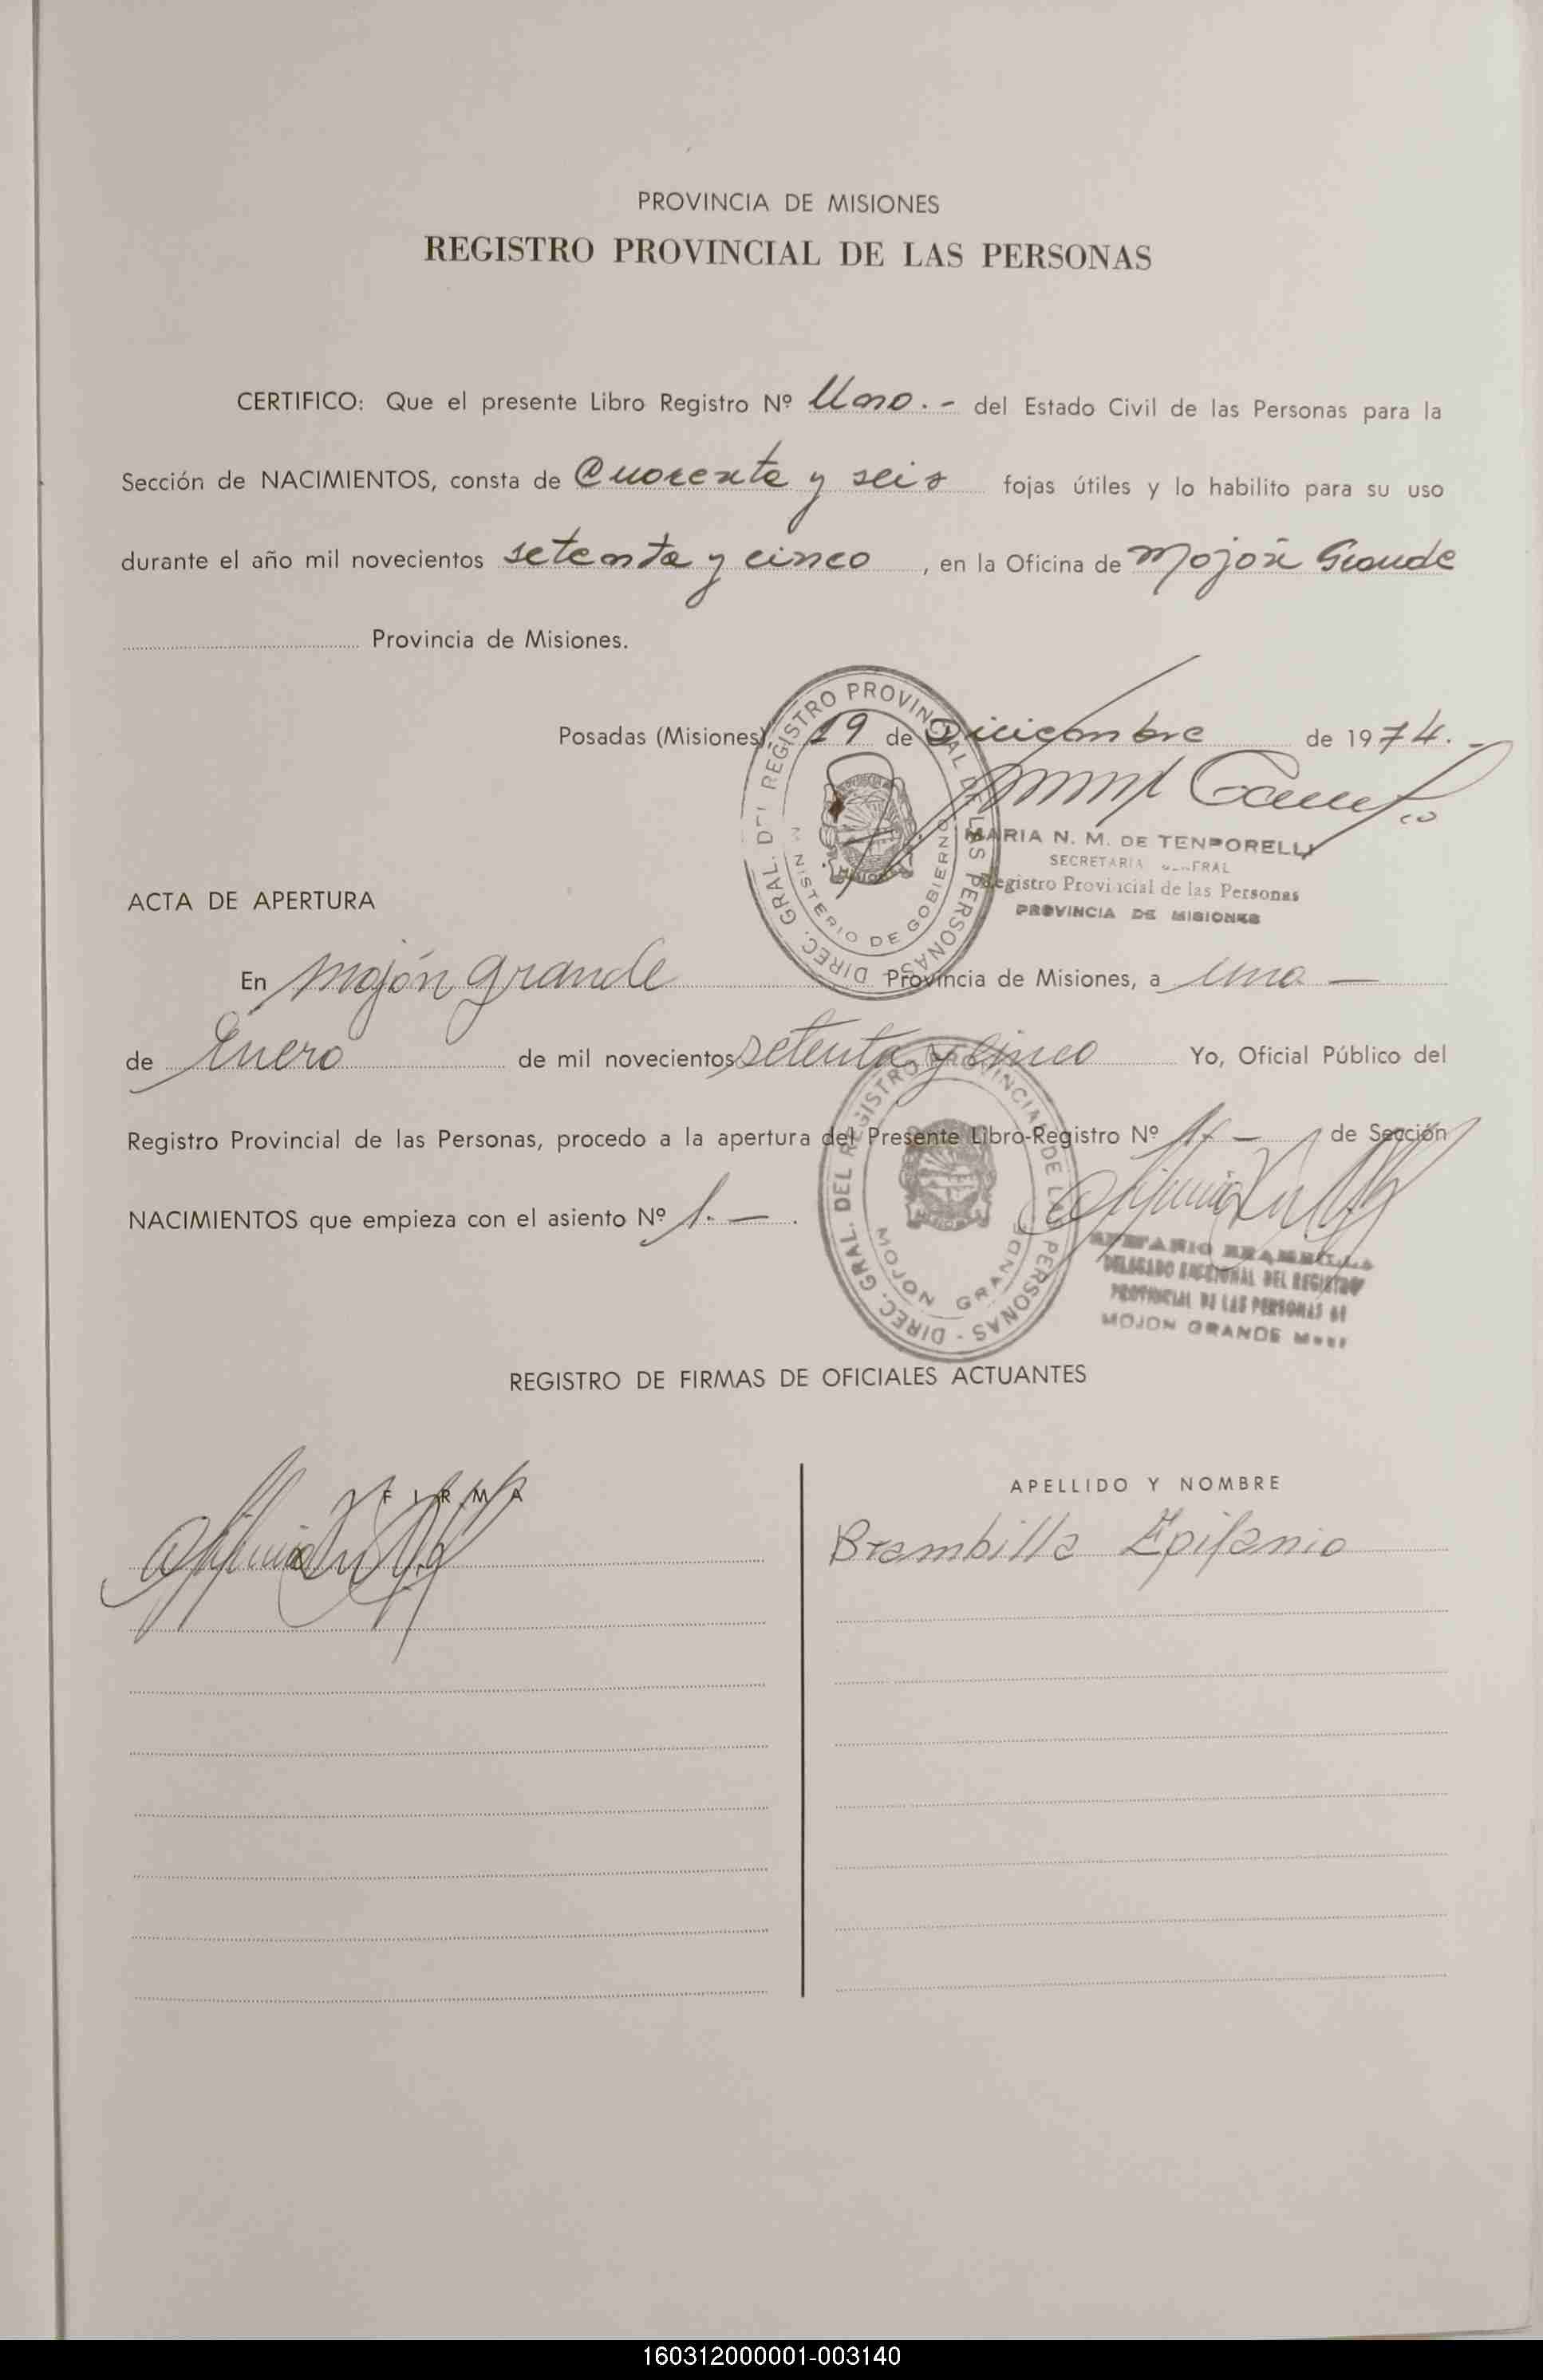 PROVINCIA DE MISIONES
REGISTRO PROVINCIAL DE LAS PERSONAS
CERTIFICO: Que el presente Libro Registro Nº Uno.- del Estado Civil de las Personas para la
Sección de NACIMIENTOS, consta de Cuarenta y seis fojas útiles y lo habilito para su uso
durante el año mil novecientos setenta y cinco, en la Oficina de Mojón Grande
Provincia de Misiones.
Posadas (Misiones), 19 de Diciembre de 1974.-
DIREC. GRAL. DEL REGISTRO PROVINCIAL DE LAS PERSONAS
MINISTERIO DE GOBIERNO
MARIA N. M. DE TEMPORELLI
SECRETARIA GENERAL
Registro Provincial de las Personas
PROVINCIA DE MISIONES
ACTA DE APERTURA
En Mojón grande Provincia de Misiones, a uno —
de Enero de mil novecientos setenta y cinco Yo, Oficial Público del
Registro Provincial de las Personas, procedo a la apertura del Presente Libro-Registro Nº 1.- de Sección
NACIMIENTOS que empieza con el asiento Nº 1.- .
DIREC. GRAL. DEL REGISTRO PROVINCIAL DE LAS PERSONAS -
MOJON GRANDE
EPIFANIO BRAMBILLA
DELEGADO SECCIONAL DEL REGISTRO
PROVINCIAL DE LAS PERSONAS DE
MOJON GRANDE
REGISTRO DE FIRMAS DE OFICIALES ACTUANTES
FIRMA
APELLIDO Y NOMBRE
Brambilla Epifanio
160312000001-003140